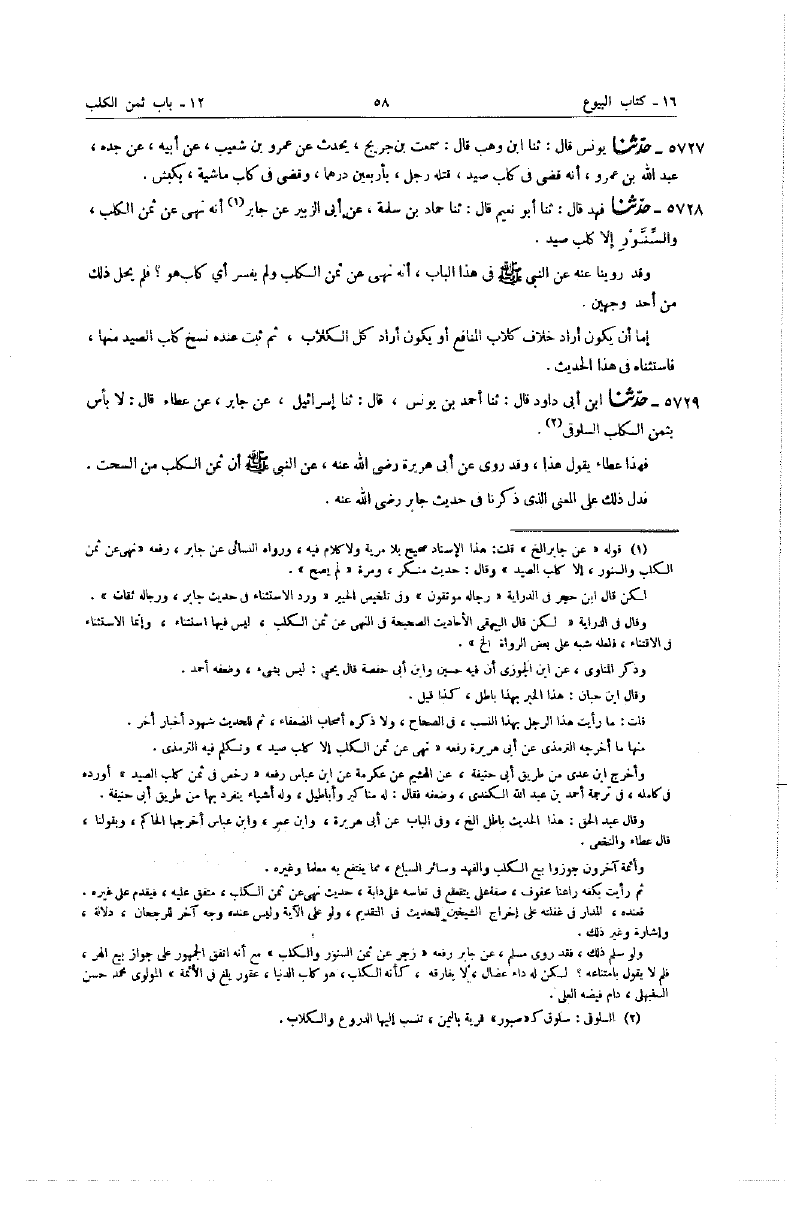 ١٦ - كتاب البيوع ٥٨ ١٢ - باب ثمن الكلب
٥٧٢٧ - حدّثنا يونس قال : ثنا ابن وهب قال : سمعت بن جريج ، يحدث عن عمرو بن شعيب ، عن أبيه ، عن جده ،
عبد الله بن عمرو ، أنه قضى فى كلب صيد ، قتله رجل ، بأربعين درهما ، وقضى فى كلب ماشية ، بكبش .
٥٧٢٨ - حدّثنا فهد قال : ثنا أبو نعيم قال : ثنا حماد بن سلمة ، عن أبى الزبير عن جابر(١) أنه نهى عن ثمن الكلب ،
والسِّنَّوْرِ إلا كلب صيد .
وقد روينا عنه عن النبي ﷺ فى هذا الباب ، أنه نهى عن ثمن الكلب ولم يفسر أي كلب هو ؟ فلم يخل ذلك
من أحد وجهين .
إما أن يكون أراد خلاف كلاب المنافع أو يكون أراد كل الكلاب ، ثم ثبت عنده نسخ كلب الصيد منها ،
فاستثناه فى هذا الحديث .
٥٧٢٩ - حدّثنا ابن أبى داود قال : ثنا أحمد بن يونس ، قال : ثنا إسرائيل ، عن جابر ، عن عطاء قال : لا بأس
بثمن الكلب السلوقى(٢) .
فهذا عطاء يقول هذا ، وقد روى عن أبى هريرة رضى الله عنه ، عن النبي ﷺ أن ثمن الكلب من السحت .
فدل ذلك على المعنى الذى ذكرنا فى حديث جابر رضى الله عنه .
(١) قوله « عن جابر الخ » قلت : هذا الإسناد صحيح بلا مرية ولا كلام فيه ، ورواه النسائى عن جابر ، رفعه « نهى عن ثمن
الكلب والسنور ، إلا كلب الصيد » وقال : حديث منكر ، ومرة « لم يصح » .
لكن قال ابن حجر فى الدراية « رجاله موثقون » وفى تلخيص الحبير « ورد الاستثناء فى حديث جابر ، ورجاله ثقات » .
وقال فى الدراية « لكن قال البيهقى الأحاديث الصحيحة فى النهى عن ثمن الكلب ، ليس فيها استثناء ، وإنما الاستثناء
فى الاقتناء ، فلعله شبه على بعض الرواة الخ » .
وذكر المناوى ، عن ابن الجوزى أن فيه حسين وابن أبى حفصة قال يحيى : ليس بشىء ، وضعفه أحمد .
وقال ابن حبان : هذا الخبر بهذا باطل ، كذا قيل .
قلت : ما رأيت هذا الرجل بهذا النسب ، فى الصحاح ، ولا ذكره أصحاب الضعفاء ، ثم للحديث شهود أخبار أخر .
منها ما أخرجه الترمذى عن أبى هريرة رفعه « نهى عن ثمن الكلب إلا كلب صيد » وتكلم فيه الترمذى .
وأخرج ابن عدى من طريق أبى حنيفة ، عن الهيثم عن عكرمة عن ابن عباس رفعه « رخص فى ثمن كلب الصيد » أورده
فى كامله ، فى ترجمة أحمد بن عبد الله الكندى ، وضعفه فقال : له مناكير وأباطيل ، وله أشياء ينفرد بها من طريق أبى حنيفة .
وقال عبد الحق : هذا الحديث باطل الخ ، وفى الباب عن أبى هريرة ، وابن عمر ، وابن عباس أخرجها الحاكم ، وبقولنا ،
قال عطاء والنخعى .
وأئمة آخرون جوزوا بيع الكلب والفهد وسائر السباع ، مما ينتفع به معلما وغيره .
ثم رأيت بكفه راعنا محفوف ، صفعلى يتقطع فى نعاسه على دابة ، حديث نهى عن ثمن الكلب ، متفق عليه ، فيقدم على غيره .
فعنده ، المدار فى غفلته على إخراج الشيخين للحديث فى التقديم ، ولو على الآية وليس عنده وجه آخر للرجحان ، دلالة ،
وإشارة وغير ذلك .
ولو سلم ذلك ، فقد روى مسلم ، عن جابر رفعه « زجر عن ثمن السنور والكلب » مع أنه اتفق الجمهور على جواز بيع الهر ،
فلم لا يقول بامتناعه ؟ لكن له داء عضال ، لا يفارقه ، كأنه الكلب ، هو كلب الدنيا ، عقور يلغ فى الأئمة » المولوى محمد حسن
السنبهلى ، دام فيضه العلى .
(٢) السلوقى : سلوق كـ«صبور» قرية باليمن ، تنسب إليها الدروع والكلاب .